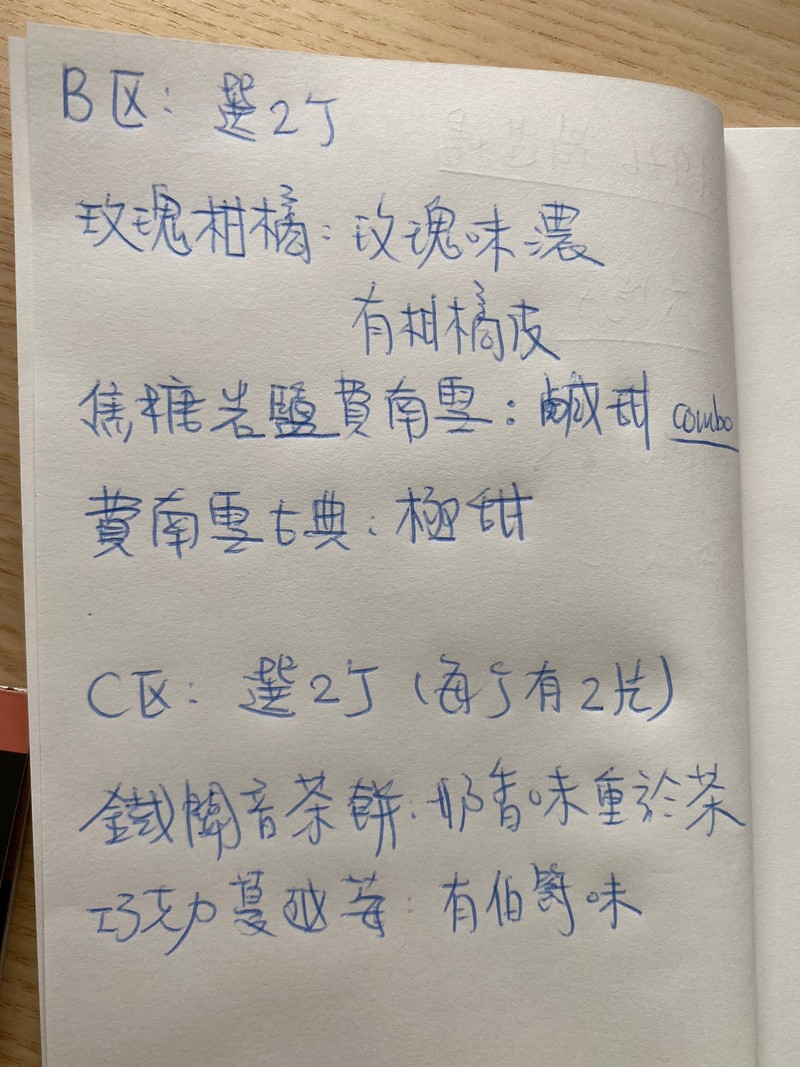 B区: 選2丁
玫瑰柑橘: 玫瑰味濃
有柑橘皮
焦糖岩鹽費南雪: 鹹甜 combo
費南雪古典: 極甜
C区: 選2丁 (每丁有2片)
鐵觀音茶餅: 奶香味重於茶
巧克力蔓越莓: 有伯爵味